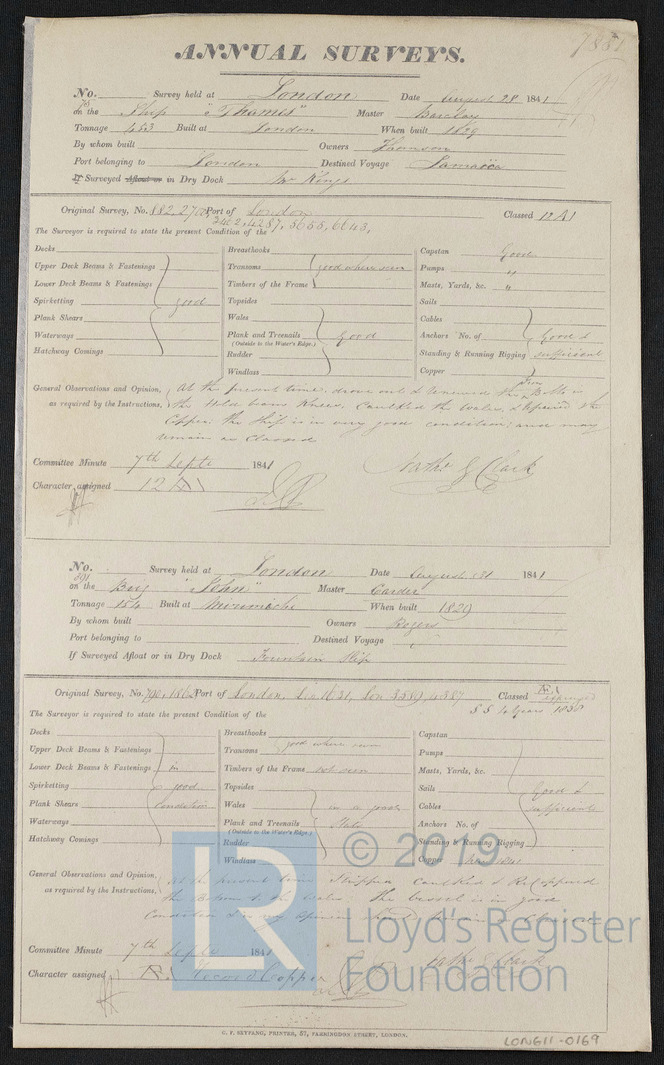 7881
ANNUAL SURVEYS.
No. Survey held at London Date August 28 1841
on the Ship "Thames" Master Barclay
Tonnage 453 Built at London When built 1829
By whom built Owners Thomson
Port belonging to London Destined Voyage Jamaica
If Surveyed Afloat or in Dry Dock Mr Kings
Original Survey, No. 882, 2700 Port of London Classed 12 A1
3402, 4287, 5655, 6643,
The Surveyor is required to state the present Condition of the
Decks Breasthooks Capstan Good
Upper Deck Beams & Fastenings Transoms good where seen Pumps "
Lower Deck Beams & Fastenings Timbers of the Frame Masts, Yards, &c. "
Spirketting good Topsides Sails
Plank Shears Wales Cables
Waterways Plank and Treenails good Anchors No. of Good &
(Outside to the Water's Edge.)
Hatchway Comings Rudder Standing & Running Rigging sufficient
Windlass Copper
General Observations and Opinion, At the present time, drove out & renewed the Iron Bolts in
as required by the Instructions, the Hold beams Knees, Caulked the wales, & repaired the
Copper. the Ship is in very good condition; and may
remain as Classed
Committee Minute 7th Septr 1841 Nathl G Clark
Character assigned 12 A1
No. Survey held at London Date August 31 1841
on the Brig "John" Master Carder
Tonnage 154 Built at Mirimichi When built 1829
By whom built Owners Rogers
Port belonging to Destined Voyage
If Surveyed Afloat or in Dry Dock Fountain Slip
Original Survey, No. 790, 1862 Port of London, Liv 1631, Lon 3389, 4387 Classed Æ1
expunged
S S 10 Years 1838
The Surveyor is required to state the present Condition of the
Decks Breasthooks Capstan
Upper Deck Beams & Fastenings Transoms good where seen Pumps
Lower Deck Beams & Fastenings in Timbers of the Frame not seen Masts, Yards, &c.
Spirketting good Topsides Sails Good &
Plank Shears Condition Wales in a good Cables sufficient
Waterways Plank and Treenails State Anchors No. of
(Outside to the Water's Edge.)
Hatchway Comings Rudder Standing & Running Rigging
Windlass Copper New 1841
General Observations and Opinion, at the present time Stripped Caulked & ReCoppered
as required by the Instructions, the Bottom to the Wales. The vessel is in good
Condition & in my Opinion
Committee Minute 7th Septr 1841 Nathl G Clark
Character assigned Æ1 Record Copper
LR © 2019
Lloyd's Register
Foundation
C. F. SEYFANG, PRINTER, 57, FARRINGDON STREET, LONDON.
LON611-0169